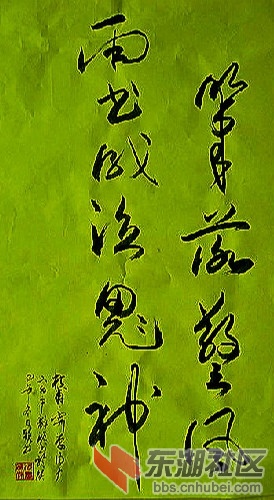 筆落驚风
雨书成泣鬼神
东湖社区
bbs.cnhubei.com